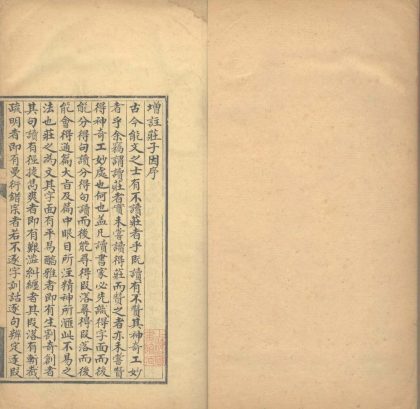 增註莊子因序
古今能文之士有不讀莊者乎既讀有不贊其神奇工妙
者乎余竊謂讀莊者實未嘗讀得莊而贊之者亦未嘗贊
得神奇工妙處也何也蓋凡讀書家必先識得字面而後
能分得句讀分得句讀而後能尋得段落尋得段落而後
能會得通篇大旨及篇中眼目所注精神所滙此不易之
法也莊之為文其字面有平易醇雅者即有生割奇創者
其句讀有徑捷雋爽者即有艱澁糾纏者其段落有斬截
疏明者即有曼衍錯綜者若不逐字訓詁逐句辨定逐段